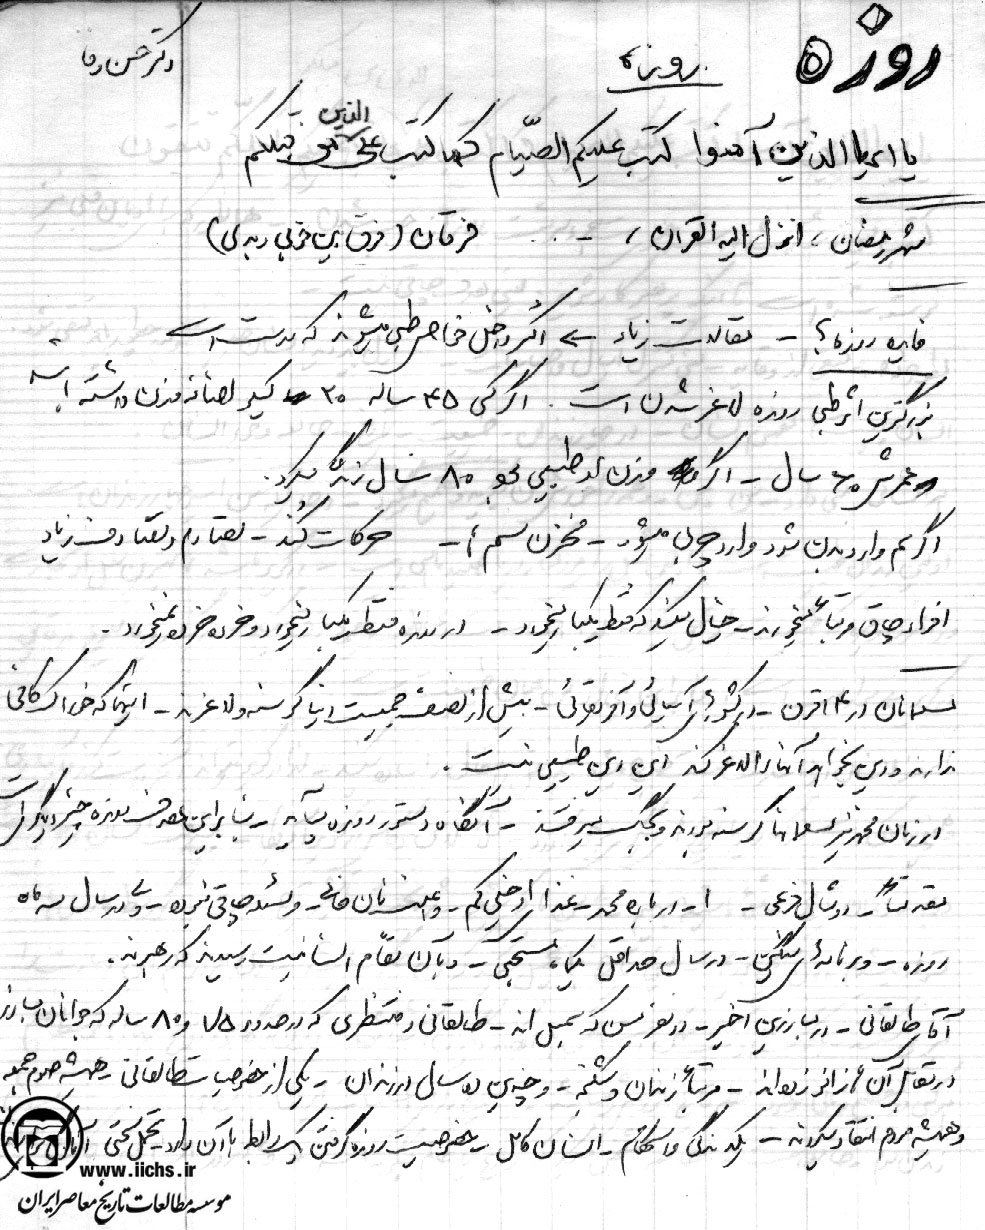 روزه
روزه
دکتر حسن رضا
یا ایها الذین آمنوا کتب علیکم الصیام کما کتب علی الذین من قبلکم
شهر رمضان، انزل الیه القرآن، - ... فرقان (فرق بین خوبی و بدی)
فایده روزه؟ - مقالات زیاد - اکثر داخل خواص طبی میشوند که درست است
بزرگترین اثر طبی روزه لاغر شدن است. اگر کسی ۴۵ ساله ۲۰ کیلو اضافه وزن داشته باشد
عمرش ۶۰ سال - اگر وزن او طبیعی بود ۸۰ سال زندگی میکرد.
اگر سم وارد بدن شود وارد چربی میشود - مخزن سم - حرکات کُند - تصادم و تصادف زیاد
افراد چاق مرتباً میخورند - خیال میکنند که فقط یکبار میخورد - در روزه فقط یکبار میخورد و خرده خرده نمیخورد.
مسلمانان در ۴ قرن - در کشورهای آسیائی و آفریقائی - بیش از نصف جمعیت دنیا گرسنه و لاغرند - اینها که خوراک کافی
ندارند و دین بخواهد آنها را لاغر کند این دین طبیعی نیست.
در زمان محمد نیز مسلمانها گرسنه بودند و بجنگ میرفتند - آنگاه دستور روزه میآید - بنابراین هدف روزه چیز دیگر است
مقدمتاً - دو مثال فرعی - ۱- درباره محمد - غذا خیلی کم - و مسئله چاقی نبوده - ولی در سال سه ماه
روزه - و برنامه‌های سنگین - در سال حداقل یکماه مستحبی - و بآن مقام انسانیت رسیدند که رهبرند.
آقای طالقانی - در مبارزین اخیر - دو نفر بودند که سمبل اند - طالقانی و منتظری که در حدود ۷۵ و ۸۰ ساله که جوانان مبارز
در مقابل آن‌ها زانو زده‌اند - مرتباً زندان و شکنجه - و چندین سال در زندان - یکی از خصوصیات طالقانی - همیشه صوم جمعه
و همیشه مردم انتقاد میکردند - یکدندگی و استحکام - انسان کامل - خصوصیت روزه گرفتن یک رابطه با آن دارد - تحمل سختی
www.iichs.ir
موسسه مطالعات تاریخ معاصر ایران